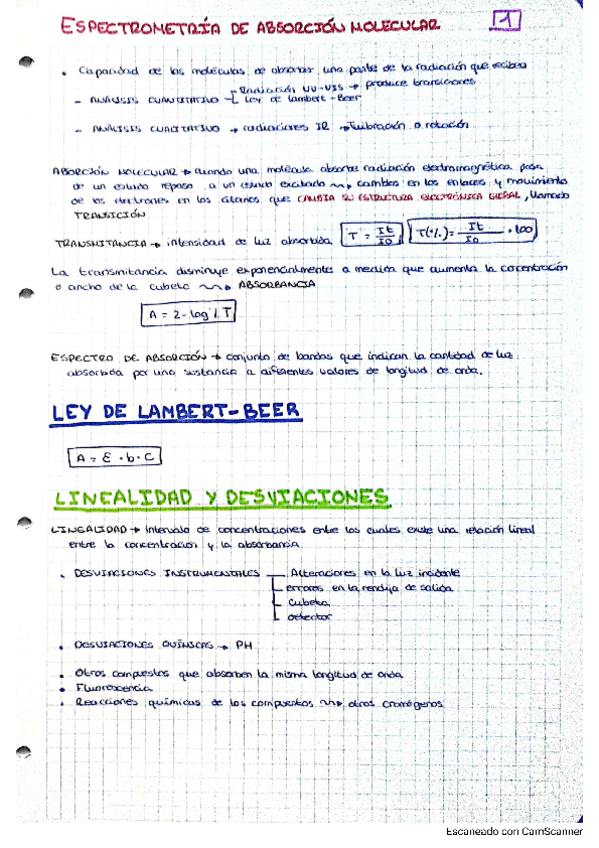 ESPECTROMETRÍA DE ABSORCIÓN MOLECULAR 1
• Capacidad de las moléculas de absorber una parte de la radiación que reciben
- ANÁLISIS CUANTITATIVO Radiación UV-VIS → produce transiciones
Ley de Lambert-Beer
- ANÁLISIS CUALITATIVO → radiaciones IR → vibración o rotación
ABSORCIÓN MOLECULAR → cuando una molécula absorbe radiación electromagnética pasa
de un estado reposo a un estado excitado → cambios en los enlaces y movimiento
de los electrones en los átomos que CAMBIA SU ESTRUCTURA ELECTRÓNICA GLOBAL, llamado
TRANSICIÓN
TRANSMITANCIA → intensidad de luz absorbida T = It/I0 T(%) = It/I0 · 100
La transmitancia disminuye exponencialmente a medida que aumenta la concentración
o ancho de la cubeta → ABSORBANCIA
A = 2 - log % T
ESPECTRO DE ABSORCIÓN → conjunto de bandas que indican la cantidad de luz
absorbida por una sustancia a diferentes valores de longitud de onda.
LEY DE LAMBERT-BEER
A = ε · b · C
LINEALIDAD Y DESVIACIONES
LINEALIDAD → intervalo de concentraciones entre los cuales existe una relación lineal
entre la concentración y la absorbancia
• DESVIACIONES INSTRUMENTALES Alteraciones en la luz incidente
errores en la rendija de salida
Cubeta
detector
• DESVIACIONES QUÍMICAS → PH
• Otros compuestos que absorben la misma longitud de onda
• Fluorescencia
• Reacciones químicas de los compuestos → otros cromógenos
Escaneado con CamScanner